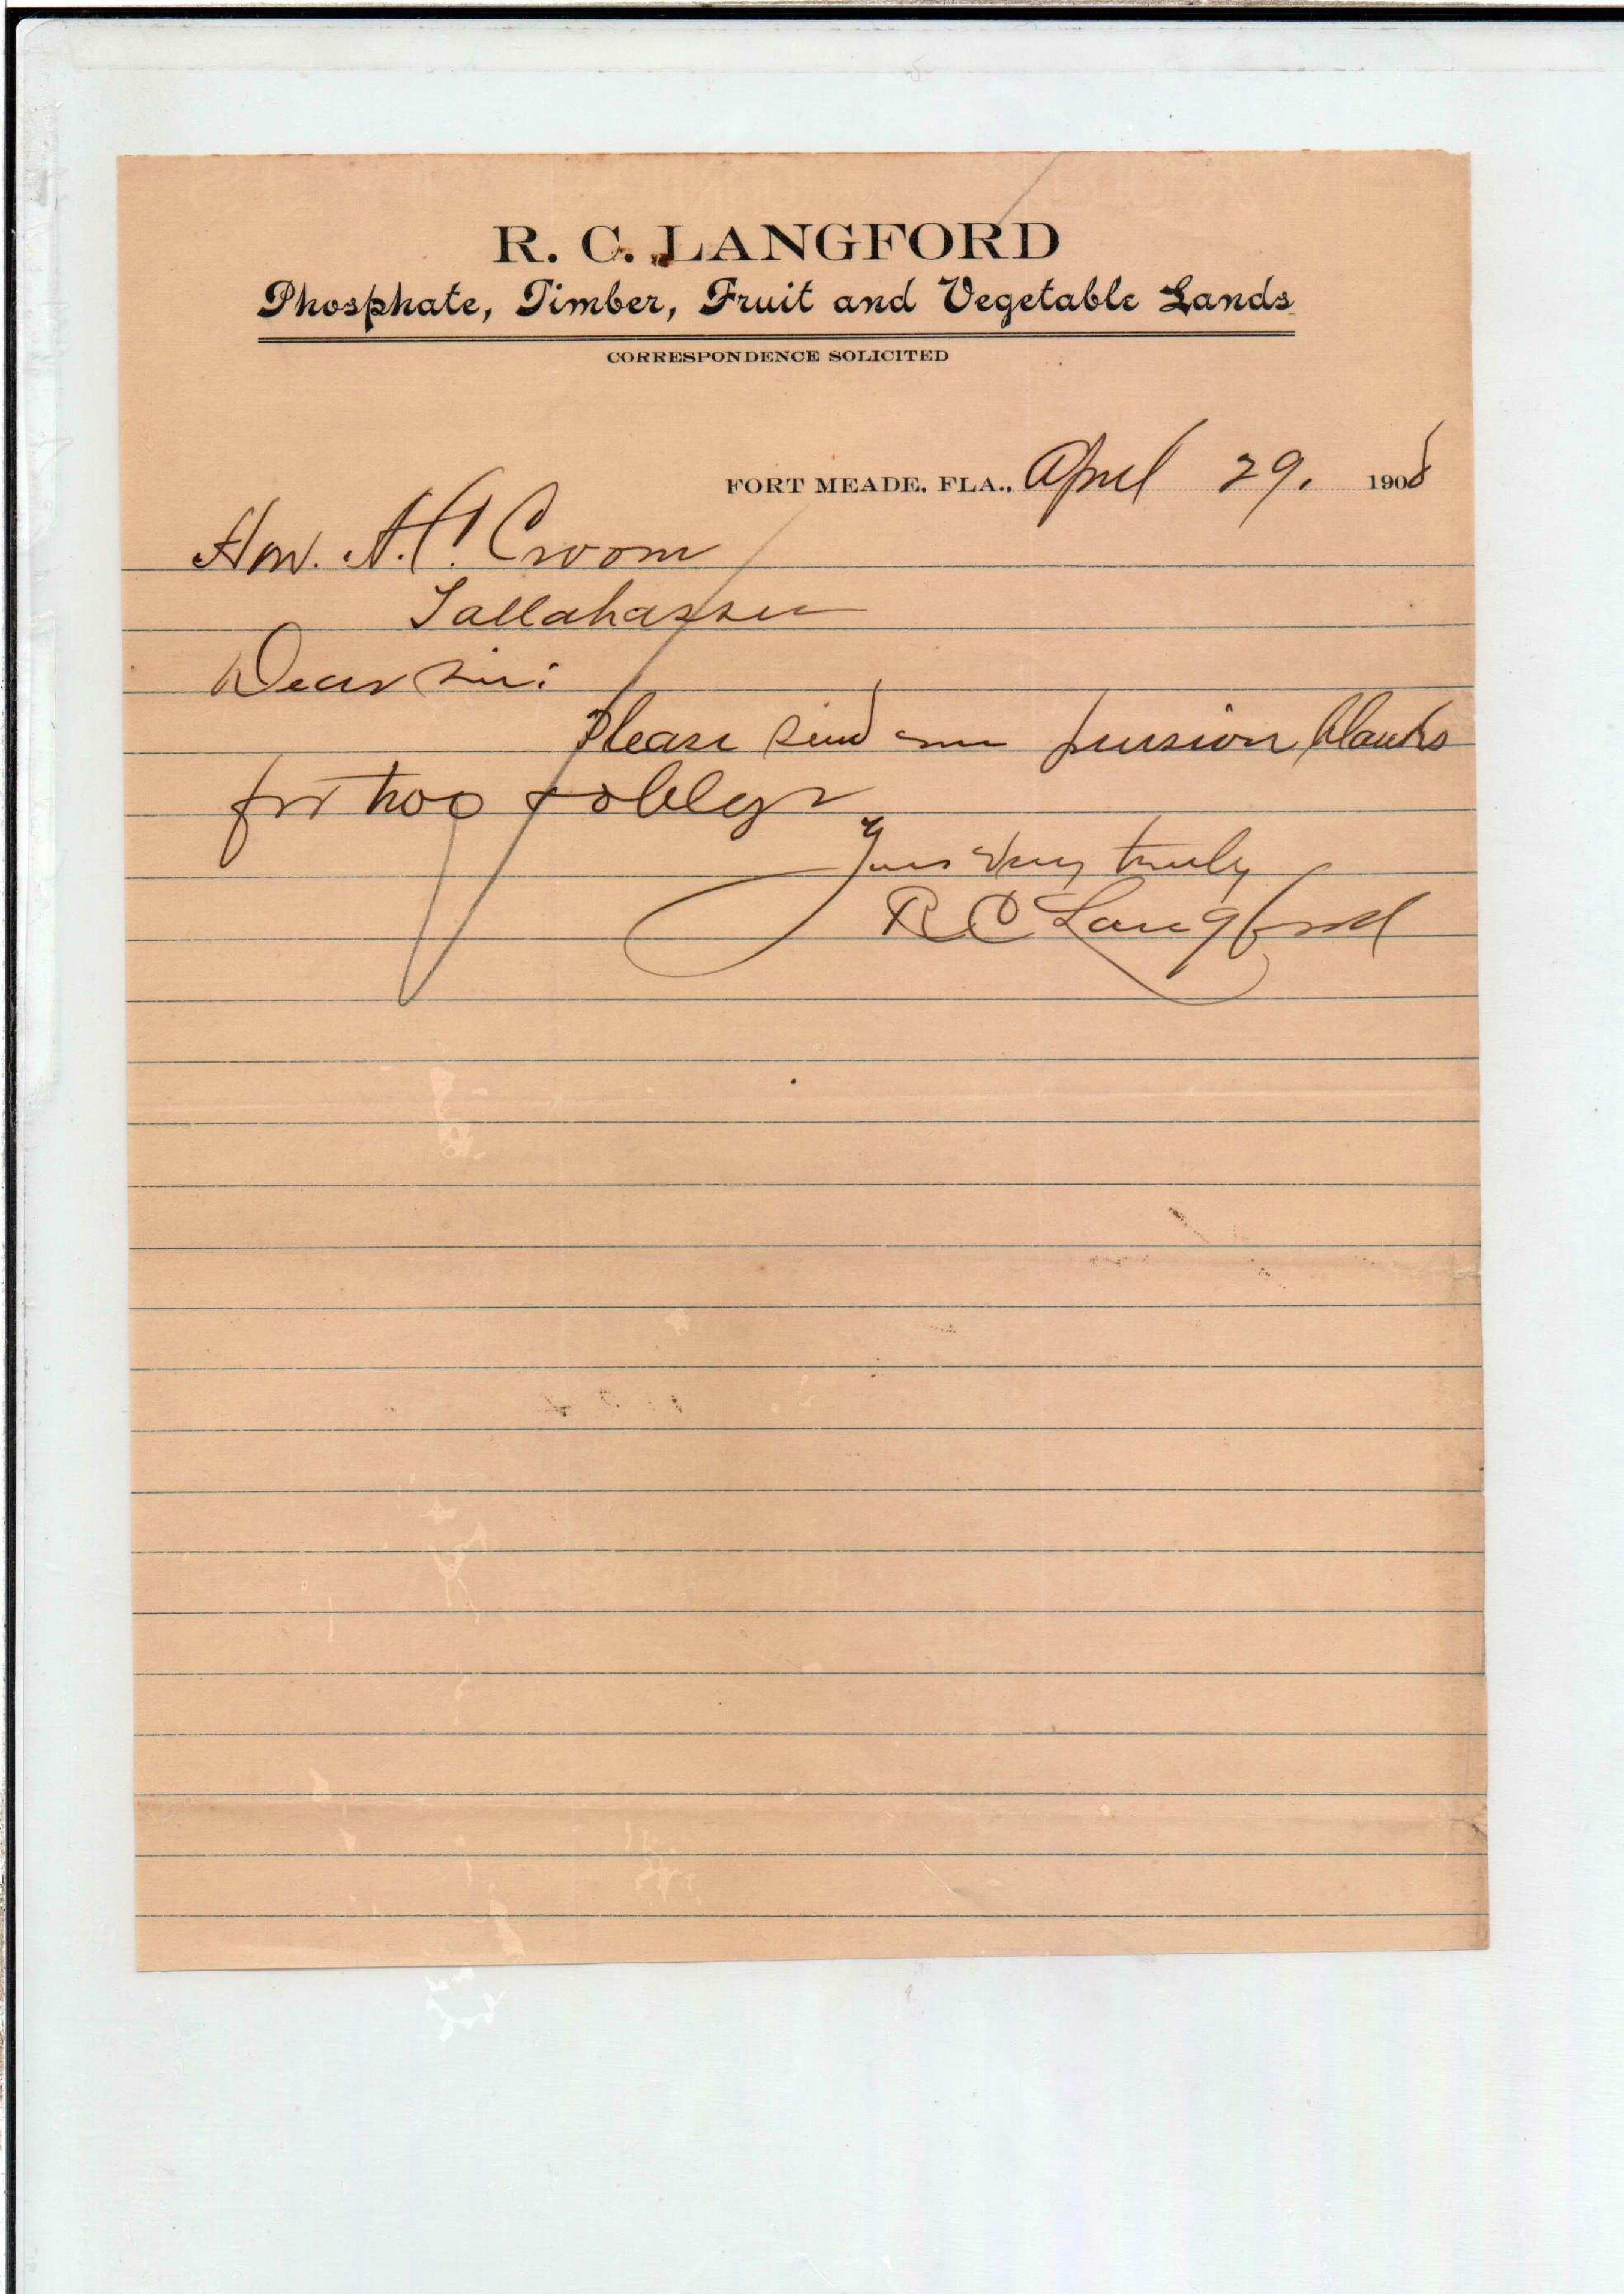 R. C. LANGFORD
Phosphate, Timber, Fruit and Vegetable Lands
CORRESPONDENCE SOLICITED
FORT MEADE, FLA., April 29, 1908
Hon. A.C. Croom
Tallahassee
Dear Sir:
Please send me pension blanks
for two & oblige
Yours very truly
R C Langford